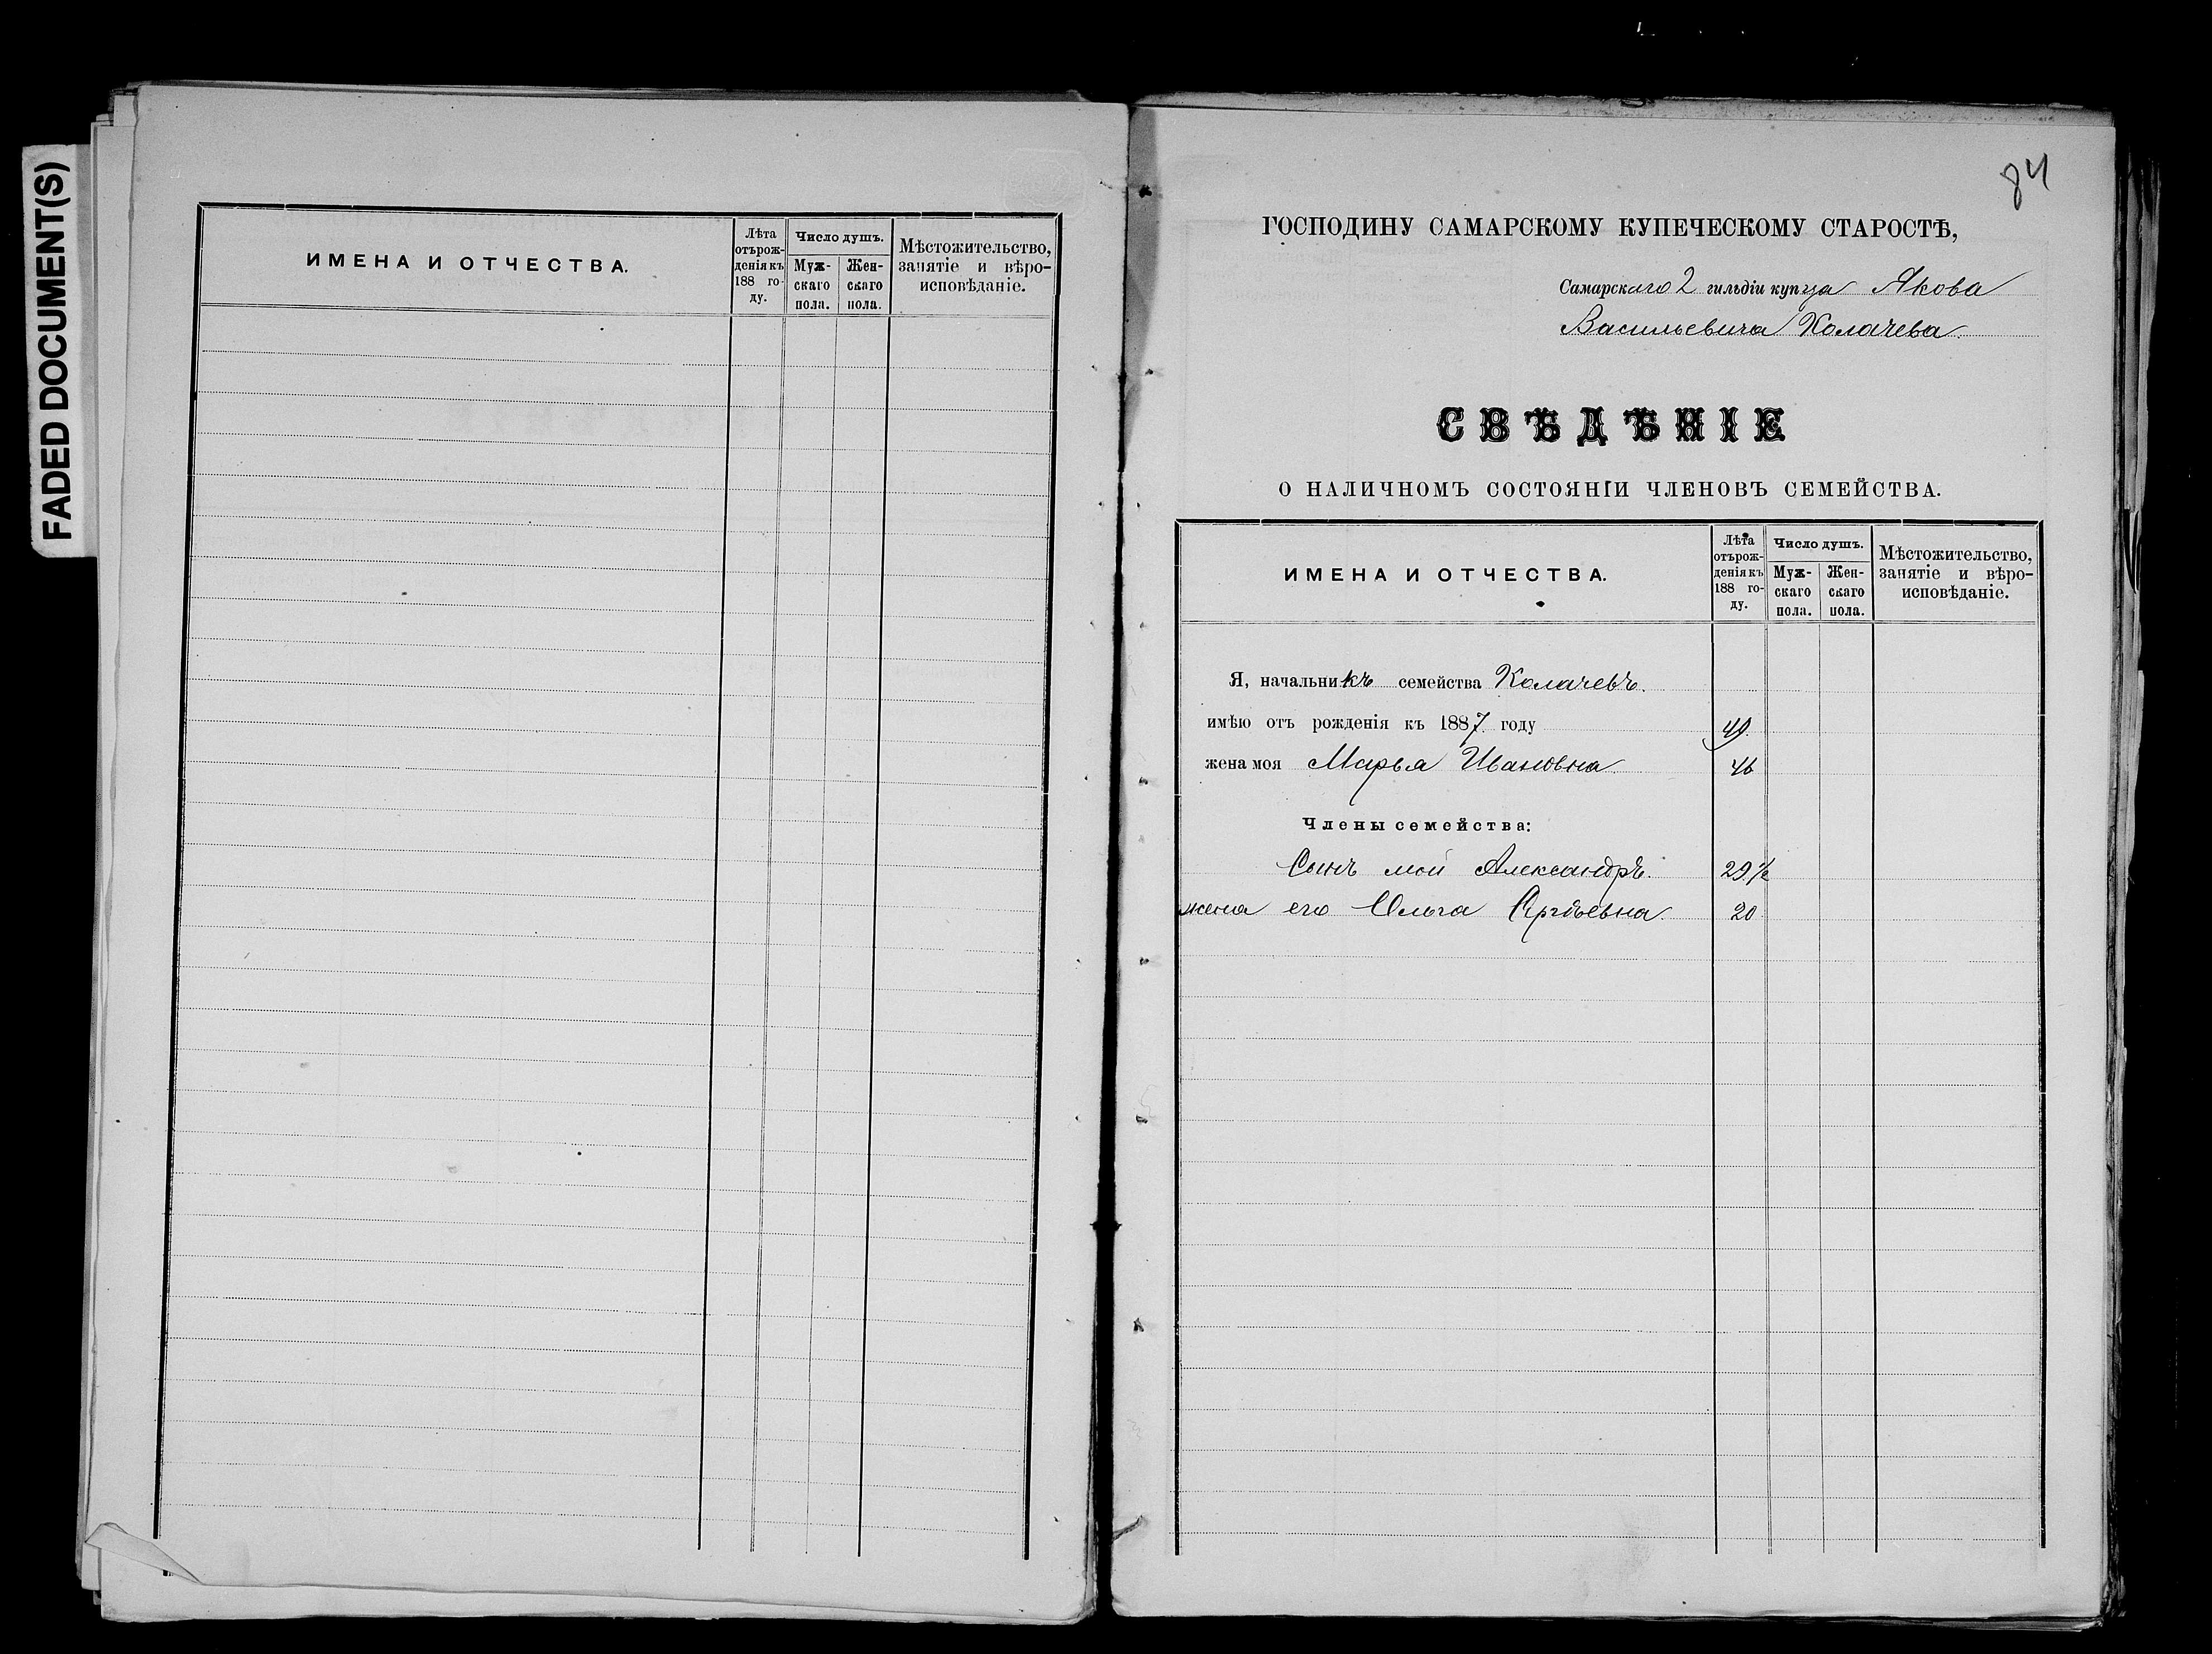 FADED DOCUMENT(S)
ИМЕНА И ОТЧЕСТВА.
Лѣта
отърож-
деніякъ
188 го-
ду.
Число душъ.
Муж-
скаго
пола.
Жен-
скаго
пола.
Мѣстожительство,
занятіе и вѣро-
исповѣданіе.
84
ГОСПОДИНУ САМАРСКОМУ КУПЕЧЕСКОМУ СТАРОСТѢ,
Самарскаго 2 гильдіи купца Якова
Васильевича Колачева.
СВѢДѢНІЕ
О НАЛИЧНОМЪ СОСТОЯНІИ ЧЛЕНОВЪ СЕМЕЙСТВА.
ИМЕНА И ОТЧЕСТВА.
Лѣта
отърож-
деніякъ
188 го-
ду.
Число душъ.
Муж-
скаго
пола.
Жен-
скаго
пола.
Мѣстожительство,
занятіе и вѣро-
исповѣданіе.
Я, начальникъ семейства Колачевъ.
имѣю отъ рожденія къ 1887 году 49.
жена моя Марья Ивановна 46
Члены семейства:
Сынъ мой Александръ. 29½
жена его Ольга 20